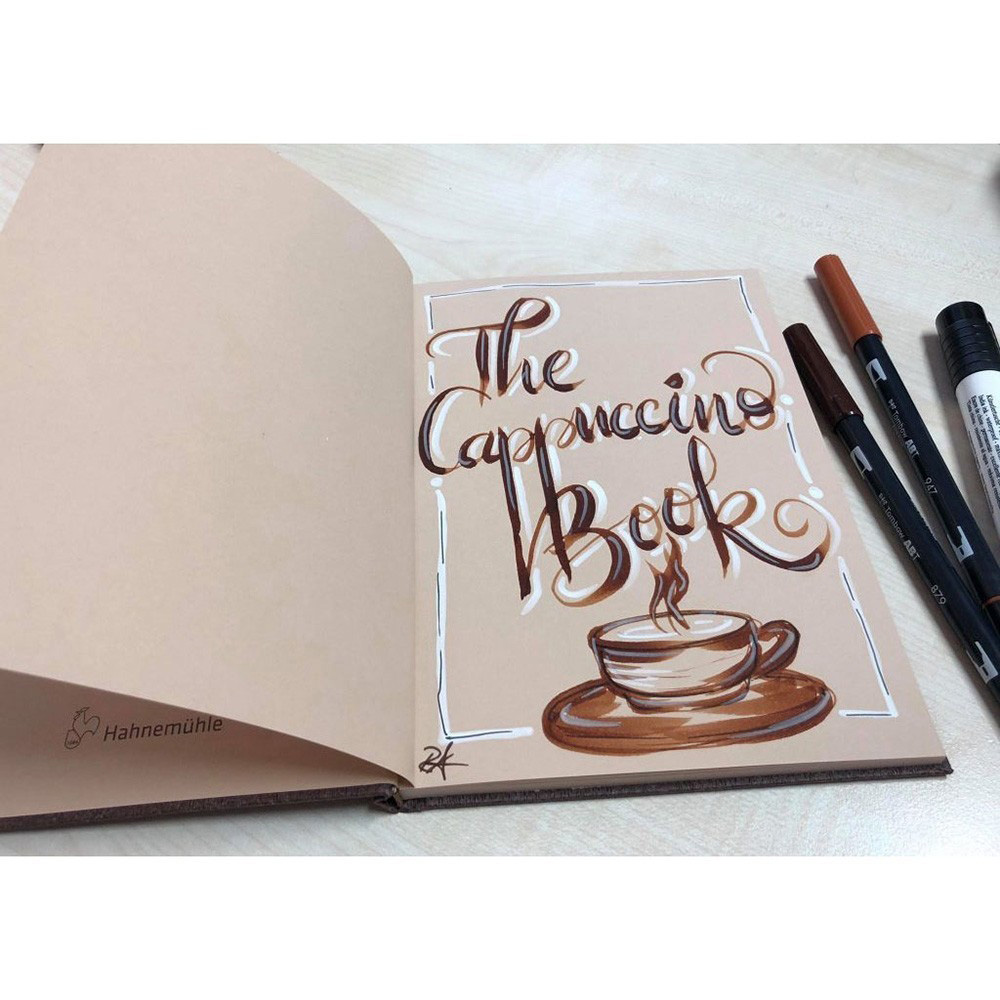 Hahnemühle
The
Cappuccino
Book
Tombow ABT
947
Tombow ABT
879